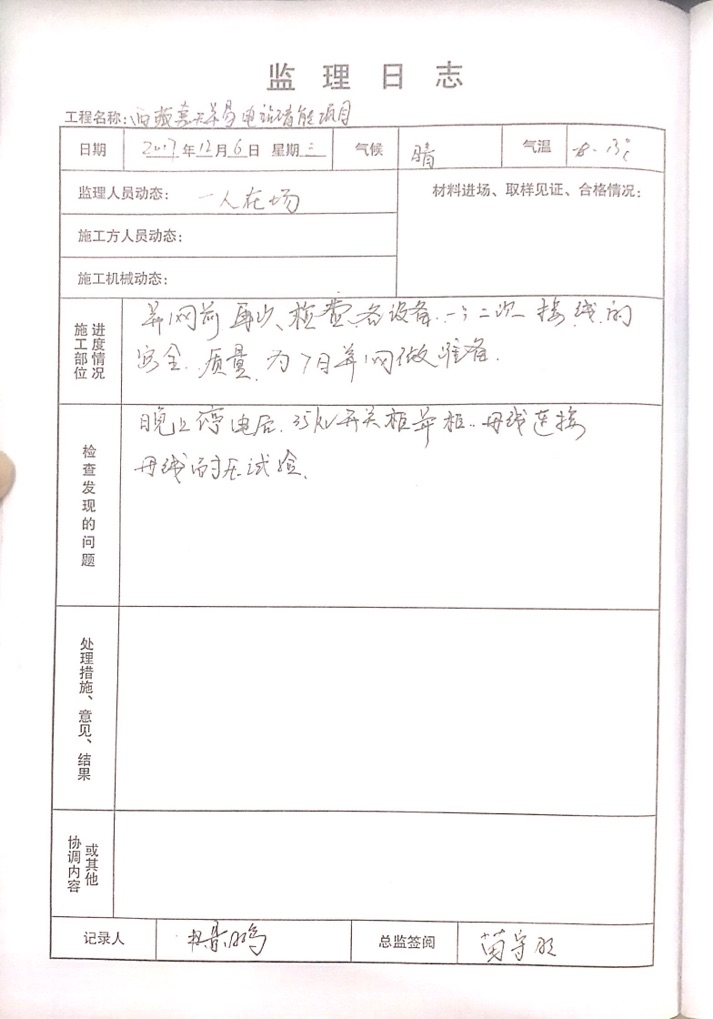 监理日志
工程名称：西藏嘉天 电站储能项目
日期 2017年12月6日 星期三 气候 晴 气温 -8-13℃
监理人员动态： 一人在场 材料进场、取样见证、合格情况：
施工方人员动态：
施工机械动态：
进度情况
施工部位
并网前 再次、检查各设备.一;二次 接线的
安全.质量.为7日并网做准备.
检查发现的问题
晚上停电后.35kV开关柜并柜..母线连接
母线耐压试验.
处理措施、意见、结果
或其他
协调内容
记录人 总监签阅 苗守